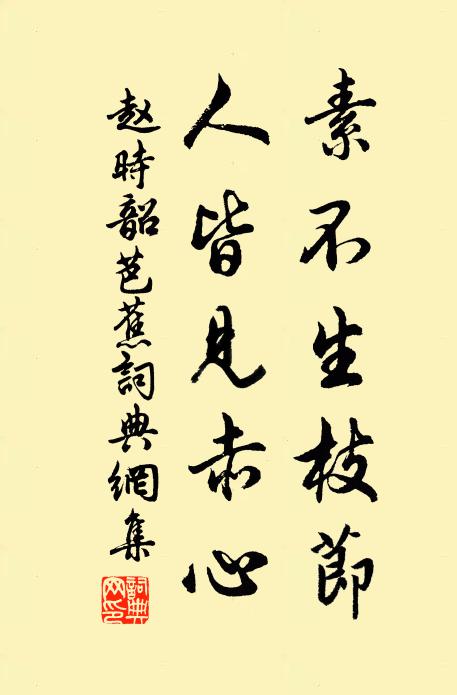 素不生枝節
人皆見赤心
赵時韶芭蕉詞典網集
詞典網印